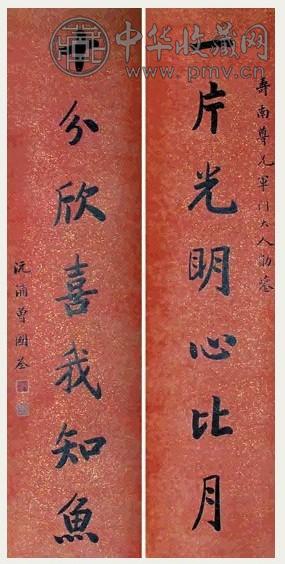 中华收藏网
www.pmv.cn
壽南尊兄軍门大人
一片光明心比月
十分欣喜我知魚
沅浦曾國荃